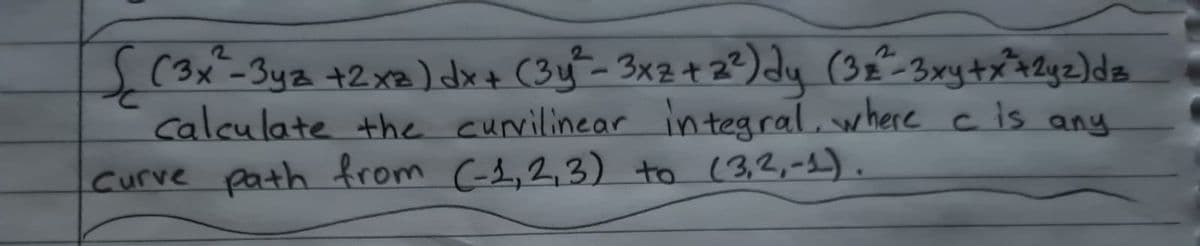 ∫c (3x²-3yz +2xz) dx + (3y²-3xz+z²)dy (3z²-3xy+x²+2yz)dz
calculate the curvilinear integral, where c is any
curve path from (-1,2,3) to (3,2,-1).